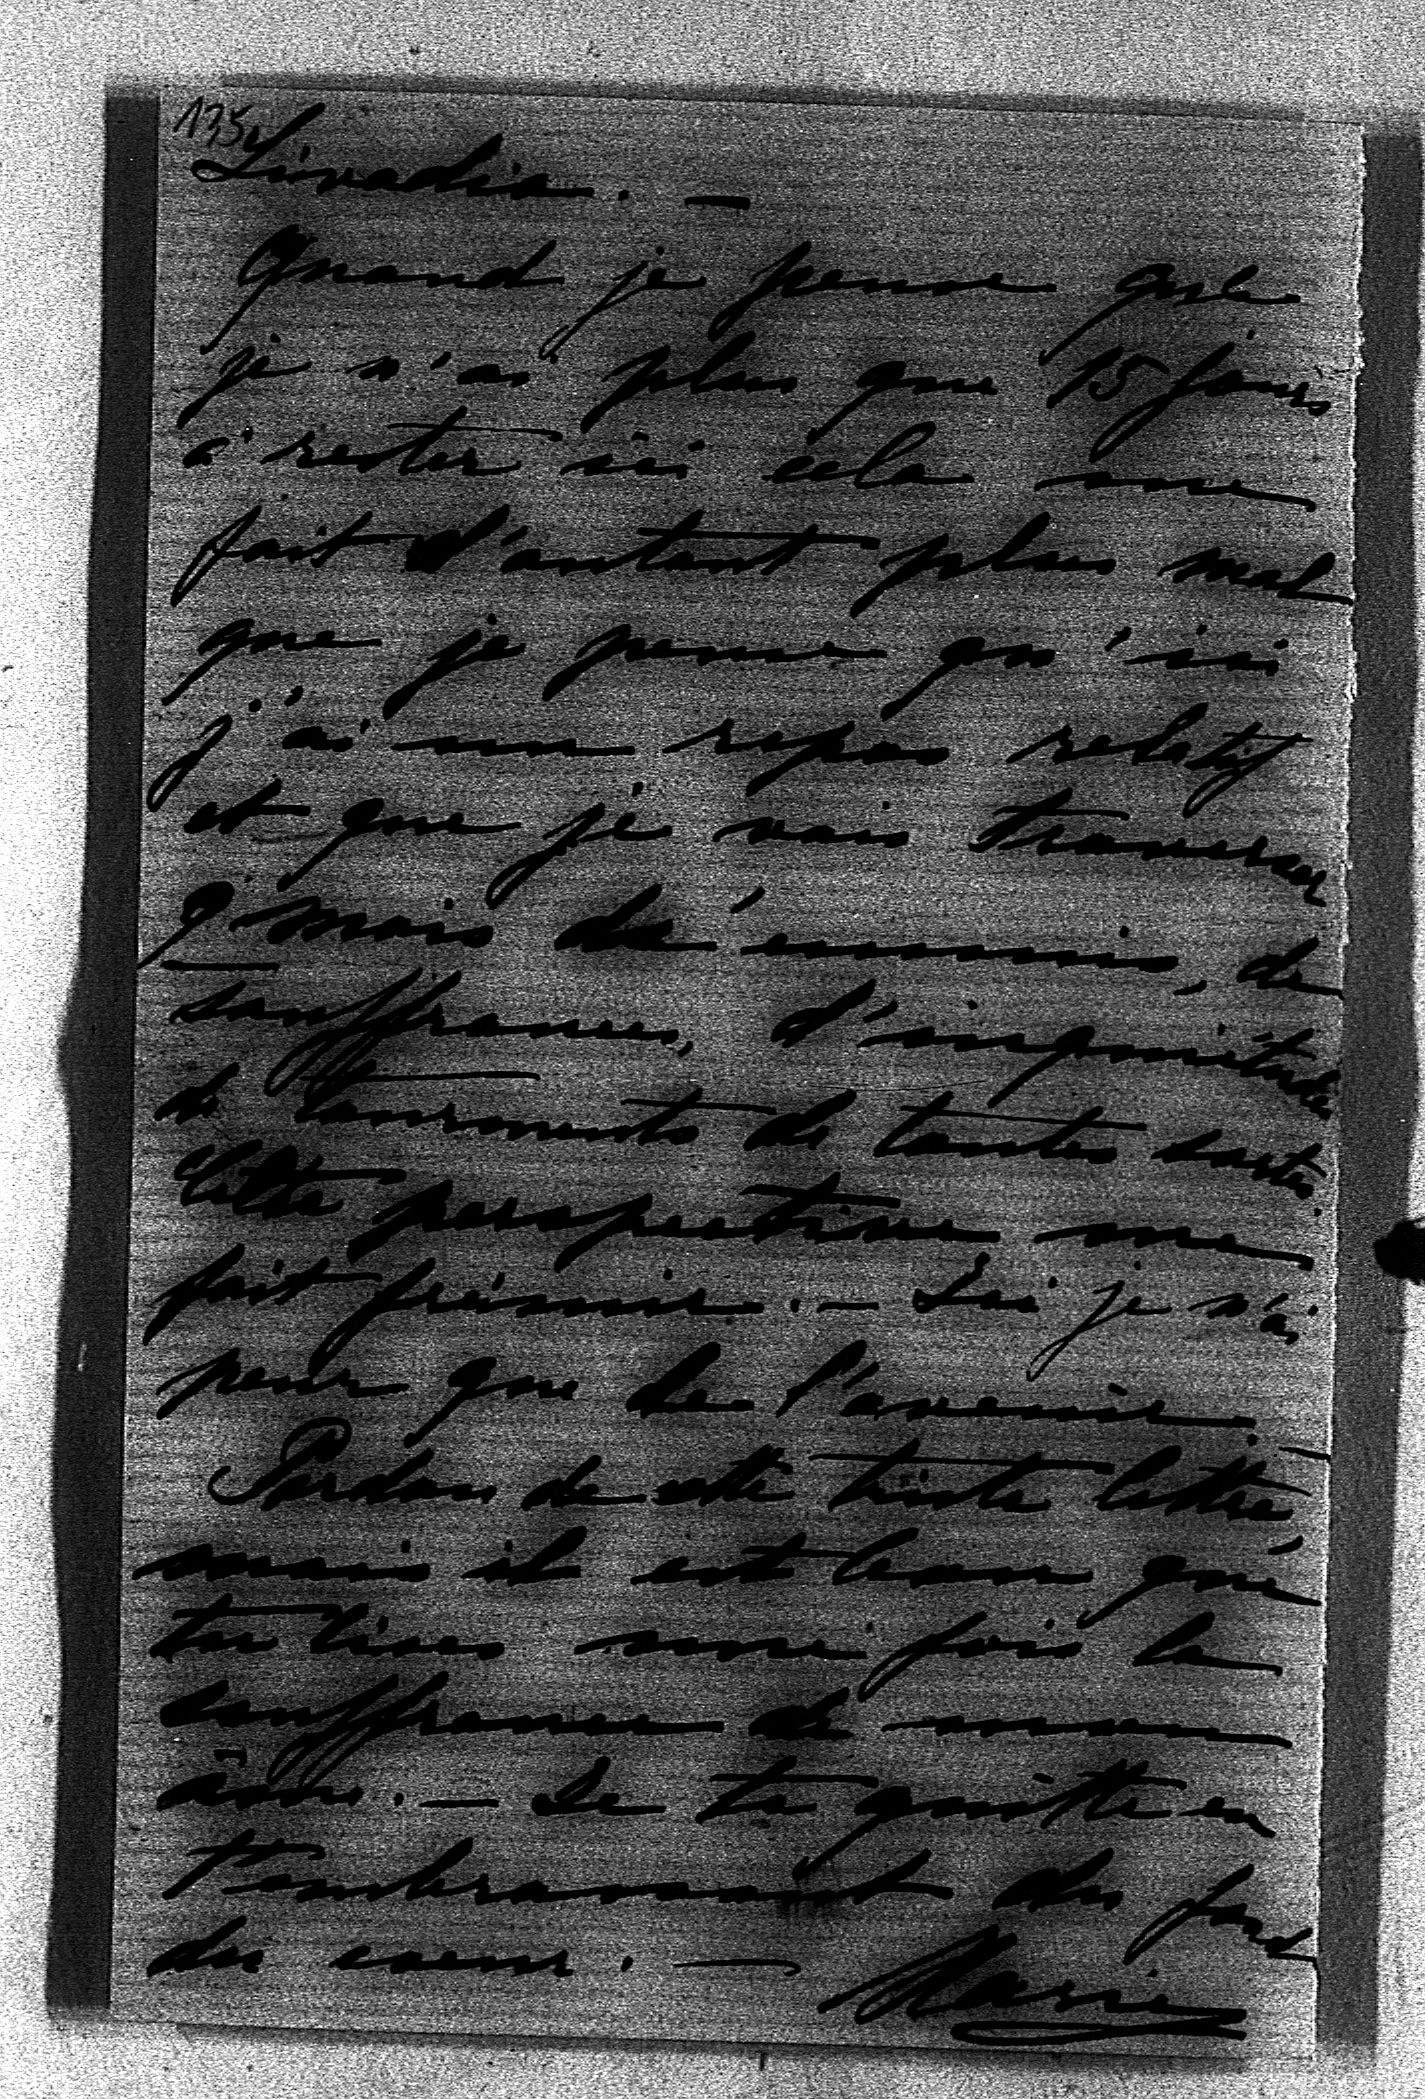 135
Livadia. —
Quand je pense que
je n'ai plus que 15 jours
à rester ici cela me
fait d'autant plus mal
que je pense qu'ici
j'ai un repos relatif
et que je vais traverser
9 mois d'ennuis, de
souffrances, d'inquiétudes
de tourments de toutes sortes.
Cette perspective me
fait frémir. — Ici je n'ai
peur que de l'avenir. —
Pardon de cette triste lettre,
mais il est bon que
tu lises une fois la
souffrance de mon
âme. — Je te quitte en
t'embrassant du fond
du coeur. — Marie